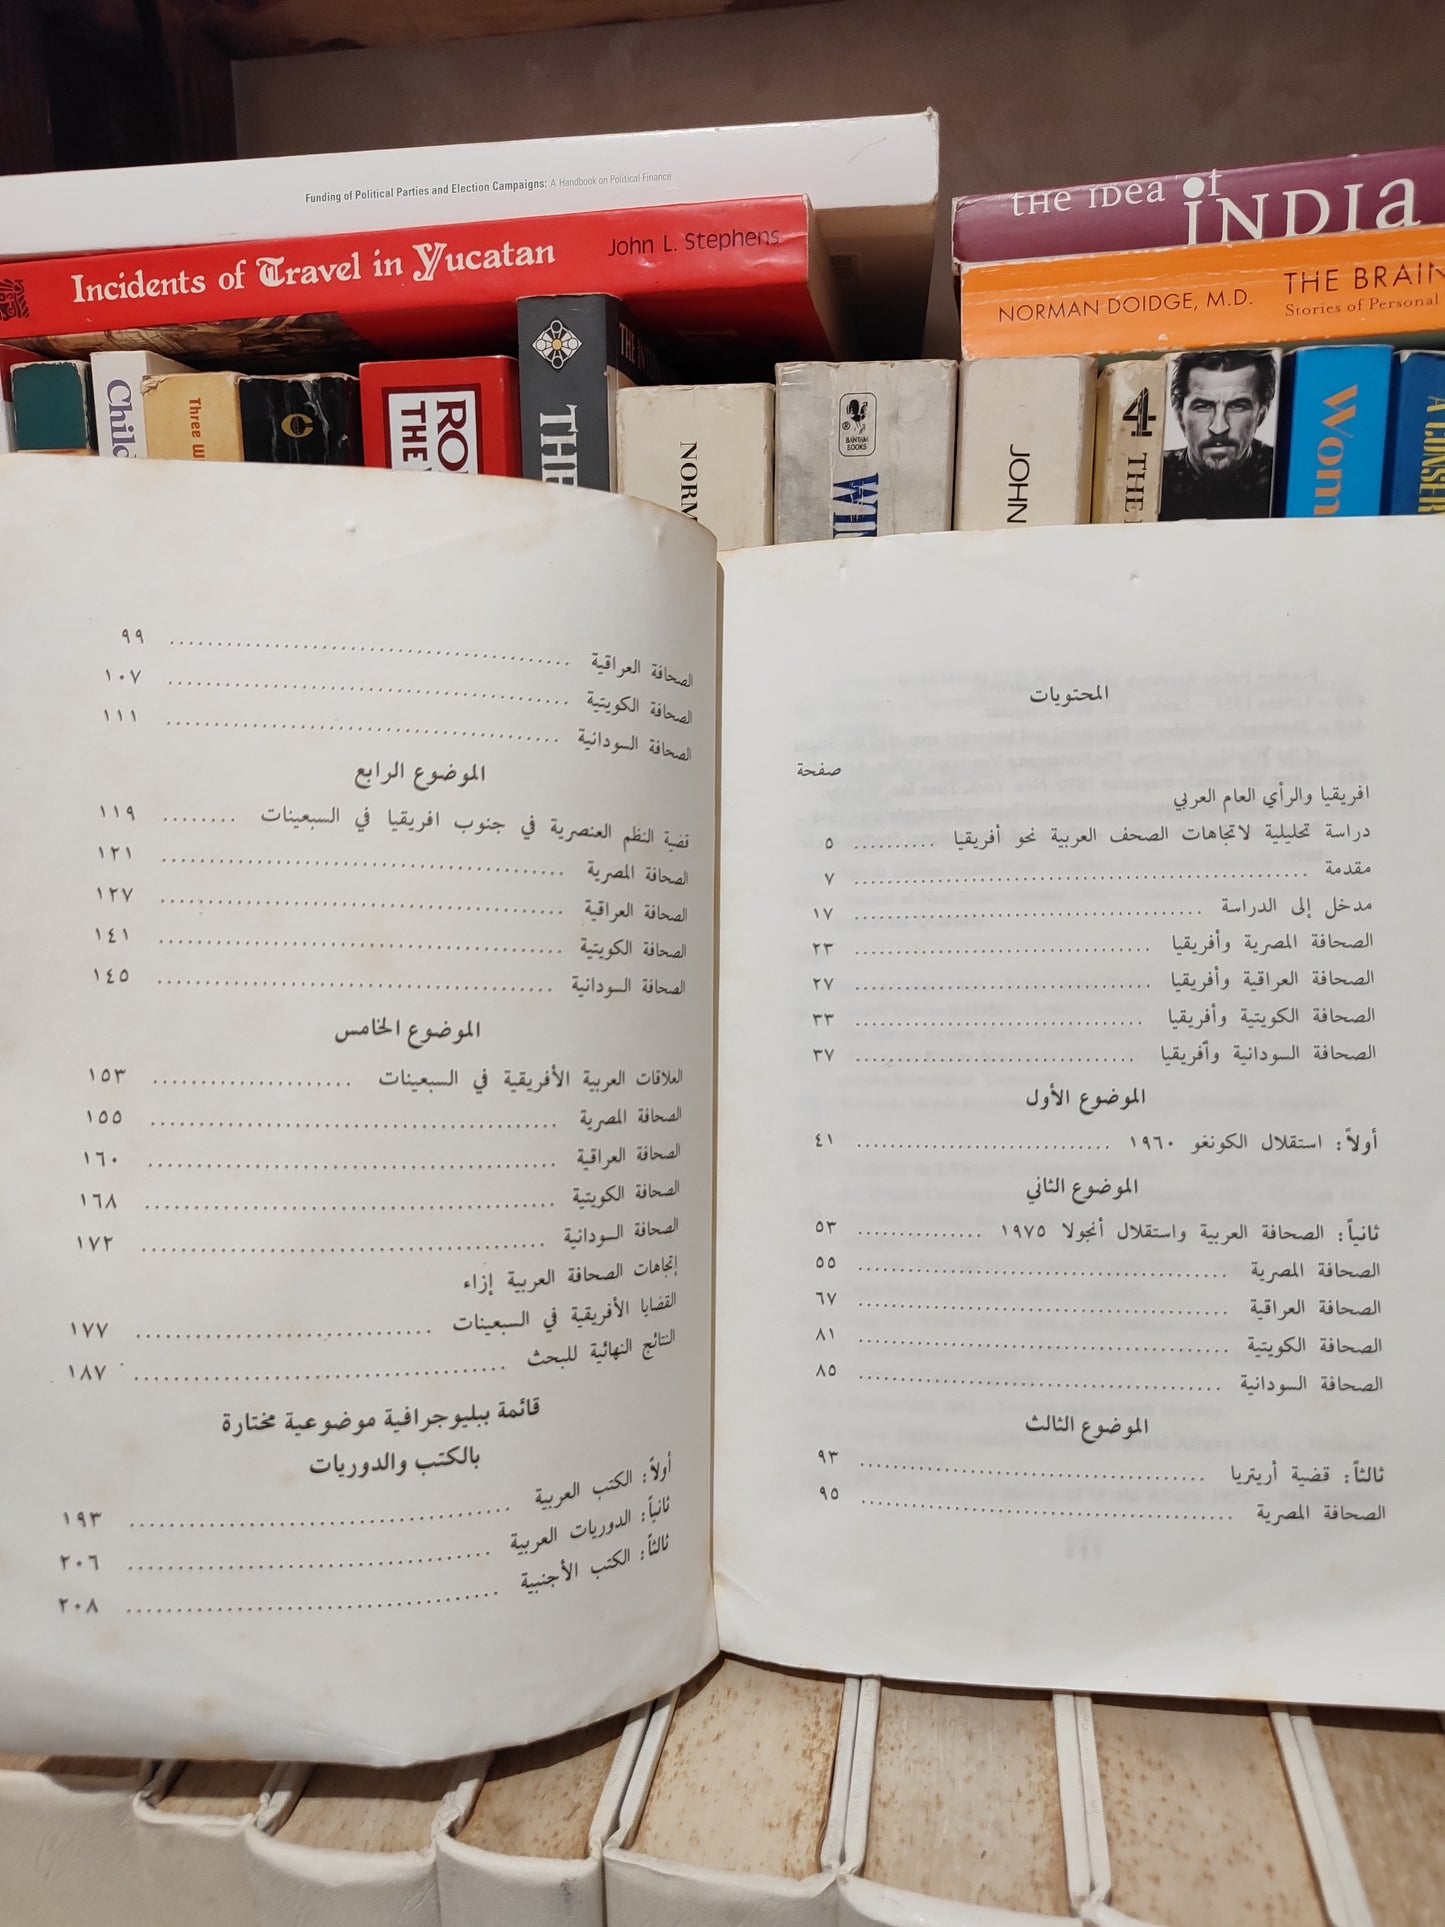 Funding of Political Parties and Election Campaigns: A Handbook on Political Finance
Incidents of Travel in Yucatan John L. Stephens
the IDea of INDIa
NORMAN DOIDGE, M.D. THE BRAIN
Stories of Personal
Child
Three W
C
RO
THE
THE
THE INT
NORM
BANTAM BOOKS
WIL
JOHN
4
THE
Wom
A CONSER
المحتويات
صفحة
افريقيا والرأي العام العربي
دراسة تحليلية لاتجاهات الصحف العربية نحو أفريقيا .......... ٥
مقدمة .......... ٧
مدخل إلى الدراسة .......... ١٧
الصحافة المصرية وأفريقيا .......... ٢٣
الصحافة العراقية وأفريقيا .......... ٢٧
الصحافة الكويتية وأفريقيا .......... ٣٣
الصحافة السودانية وأفريقيا .......... ٣٧
الموضوع الأول
أولاً: استقلال الكونغو ١٩٦٠ .......... ٤١
الموضوع الثاني
ثانياً: الصحافة العربية واستقلال أنجولا ١٩٧٥ .......... ٥٣
الصحافة المصرية .......... ٥٥
الصحافة العراقية .......... ٦٧
الصحافة الكويتية .......... ٨١
الصحافة السودانية .......... ٨٥
الموضوع الثالث
ثالثاً: قضية أريتريا .......... ٩٣
الصحافة المصرية .......... ٩٥
الصحافة العراقية .......... ٩٩
الصحافة الكويتية .......... ١٠٧
الصحافة السودانية .......... ١١١
الموضوع الرابع
قضية النظم العنصرية في جنوب افريقيا في السبعينات ........ ١١٩
الصحافة المصرية .......... ١٢١
الصحافة العراقية .......... ١٢٧
الصحافة الكويتية .......... ١٤١
الصحافة السودانية .......... ١٤٥
الموضوع الخامس
العلاقات العربية الأفريقية في السبعينات .......... ١٥٣
الصحافة المصرية .......... ١٥٥
الصحافة العراقية .......... ١٦٠
الصحافة الكويتية .......... ١٦٨
الصحافة السودانية .......... ١٧٢
إتجاهات الصحافة العربية إزاء
القضايا الأفريقية في السبعينات .......... ١٧٧
النتائج النهائية للبحث .......... ١٨٧
قائمة ببليوجرافية موضوعية مختارة
بالكتب والدوريات
أولاً: الكتب العربية .......... ١٩٣
ثانياً: الدوريات العربية .......... ٢٠٦
ثالثاً: الكتب الأجنبية .......... ٢٠٨